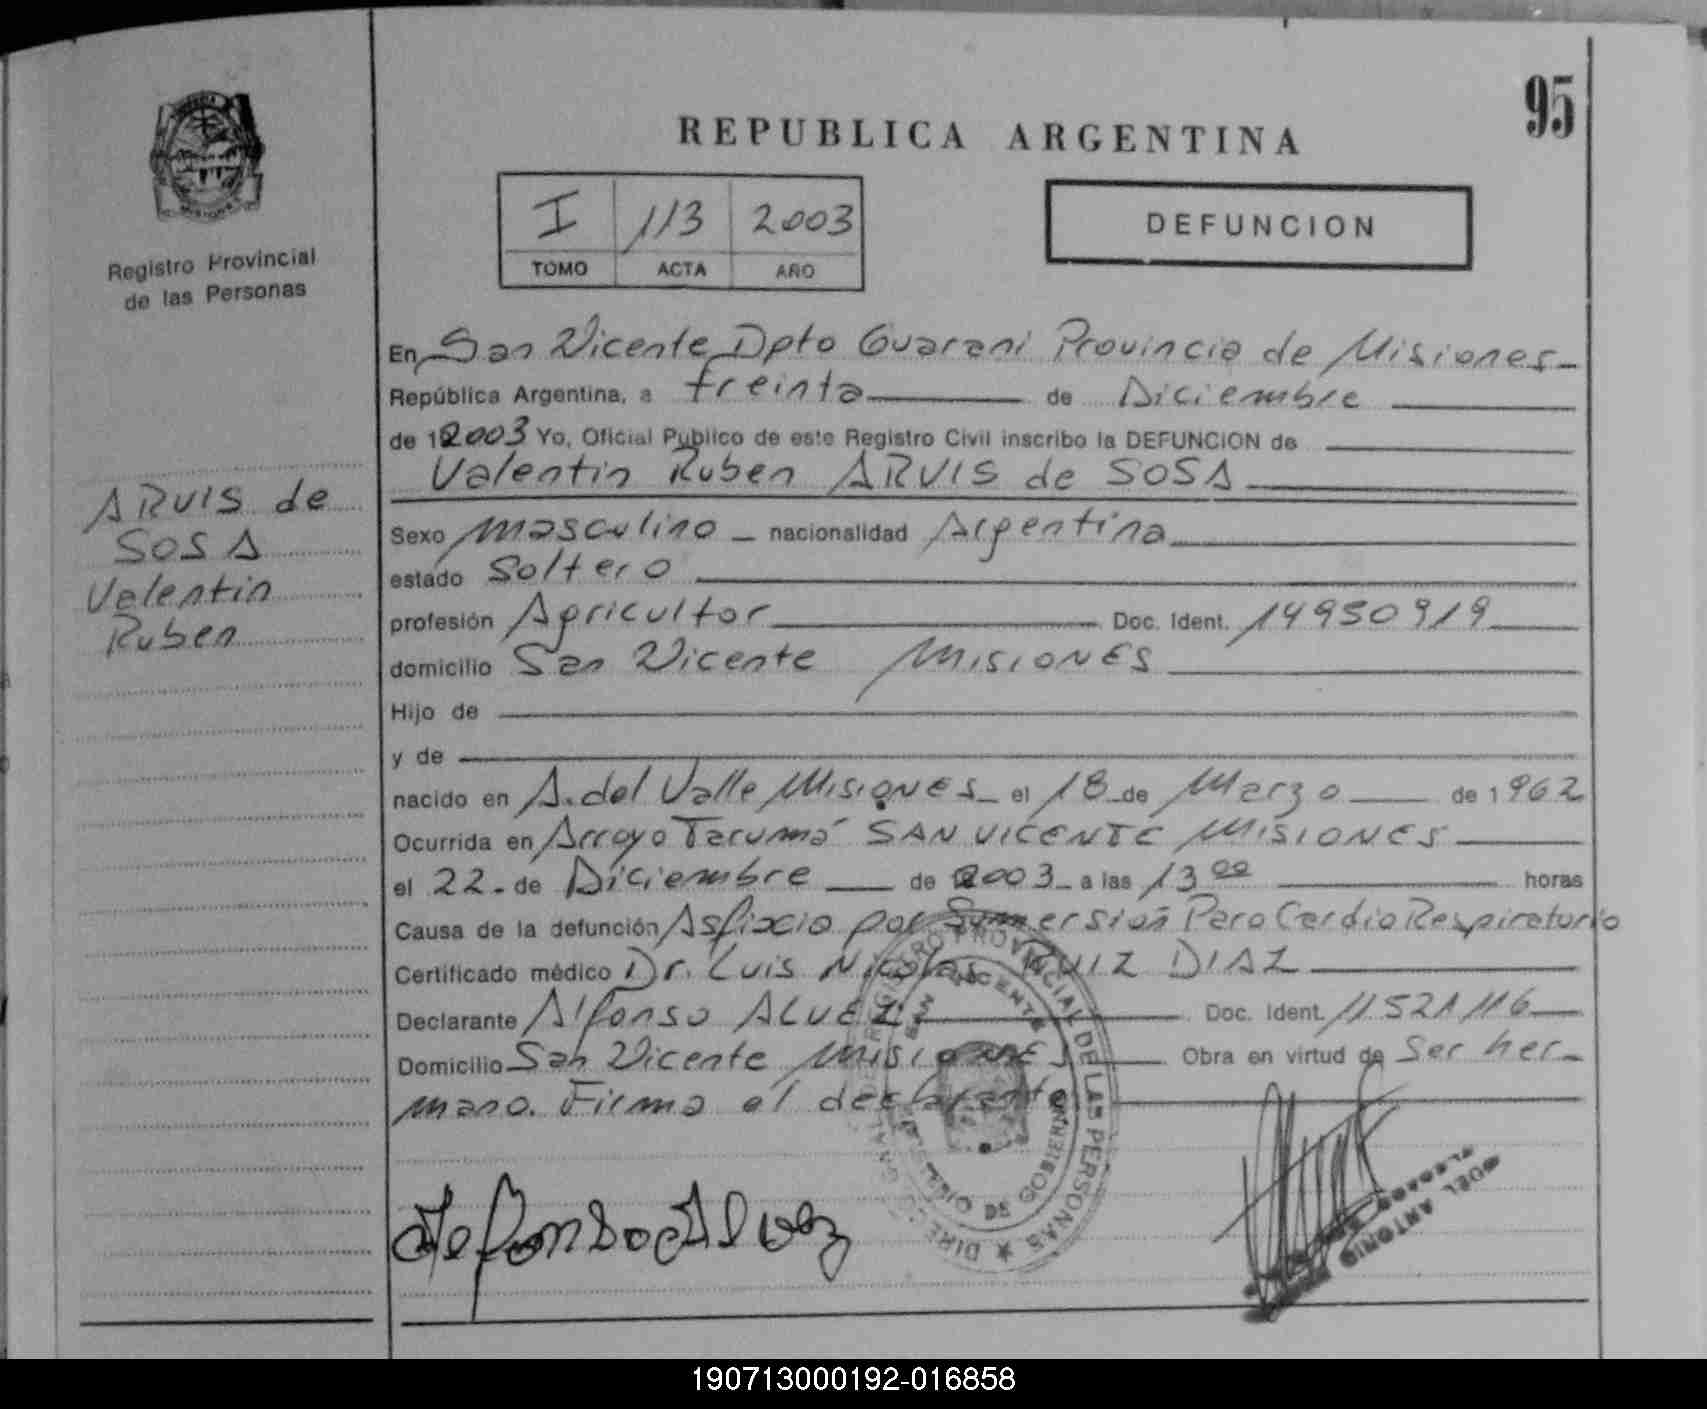 95
REPUBLICA ARGENTINA
MISIONES
Registro Provincial
de las Personas
I 113 2003
TOMO ACTA AÑO
DEFUNCION
ARVIS de
SOSA
Valentin
Ruben
En San Vicente Dpto Guarani Provincia de Misiones
República Argentina, a treinta de Diciembre
de 12003 Yo, Oficial Publico de este Registro Civil inscribo la DEFUNCION de
Valentin Ruben ARVIS de SOSA
Sexo masculino nacionalidad Argentina
estado Soltero
profesión Agricultor Doc. Ident. 14950919
domicilio San Vicente MISIONES
Hijo de
y de
nacido en A. del Valle MISIONES el 18 de Marzo de 1962
Ocurrida en Arroyo Tacumá SAN VICENTE MISIONES
el 22 de Diciembre de 2003 a las 13 00 horas
Causa de la defunción Asfixia por Summersion Paro Cardio Respiratorio
Certificado médico Dr. Luis Nicolas RUIZ DIAZ
Declarante Alfonso ALVEZ Doc. Ident. 11521116
Domicilio San Vicente MISIONES Obra en virtud de Ser her-
mano. Firma el declarante
REGISTRO PROVINCIAL DE LAS PERSONAS
SAN VICENTE
MINISTERIO DE GOBIERNO
ANTONIO
190713000192-016858